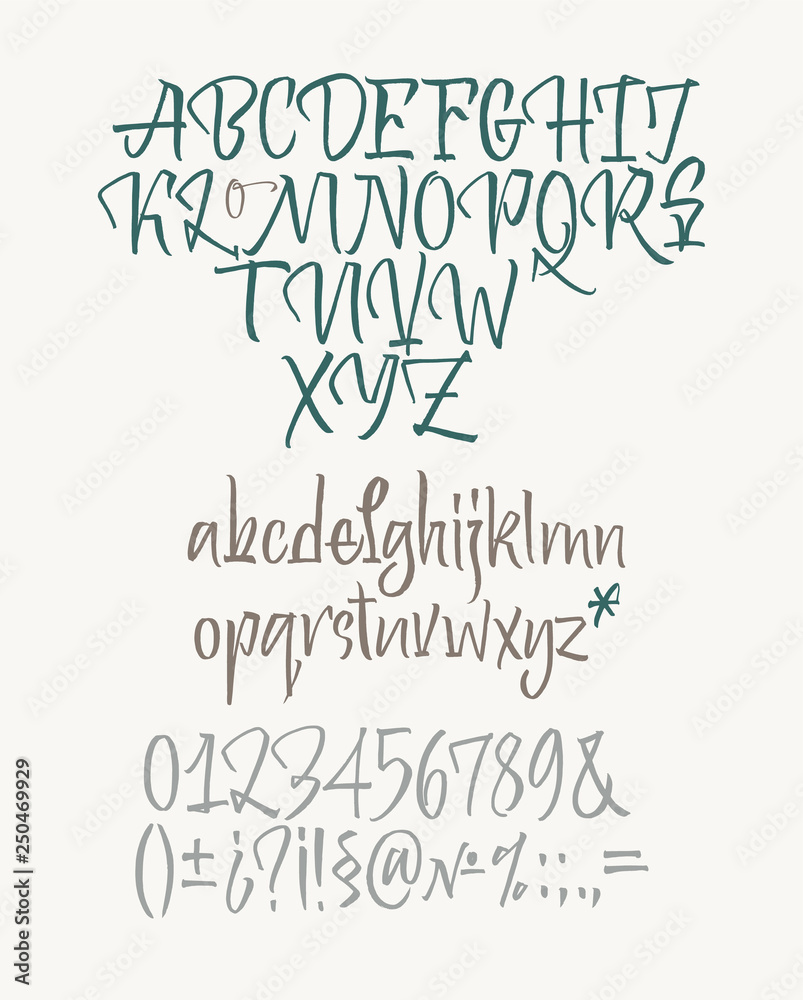 ABCDEFGHIJ
KLoMNOPQRS
TUVW
XYZ
abcdefghijklmn
opqrstuvwxyz*
0123456789&
()±¿?¡!§@№%:;.,=
Adobe Stock | #250469929